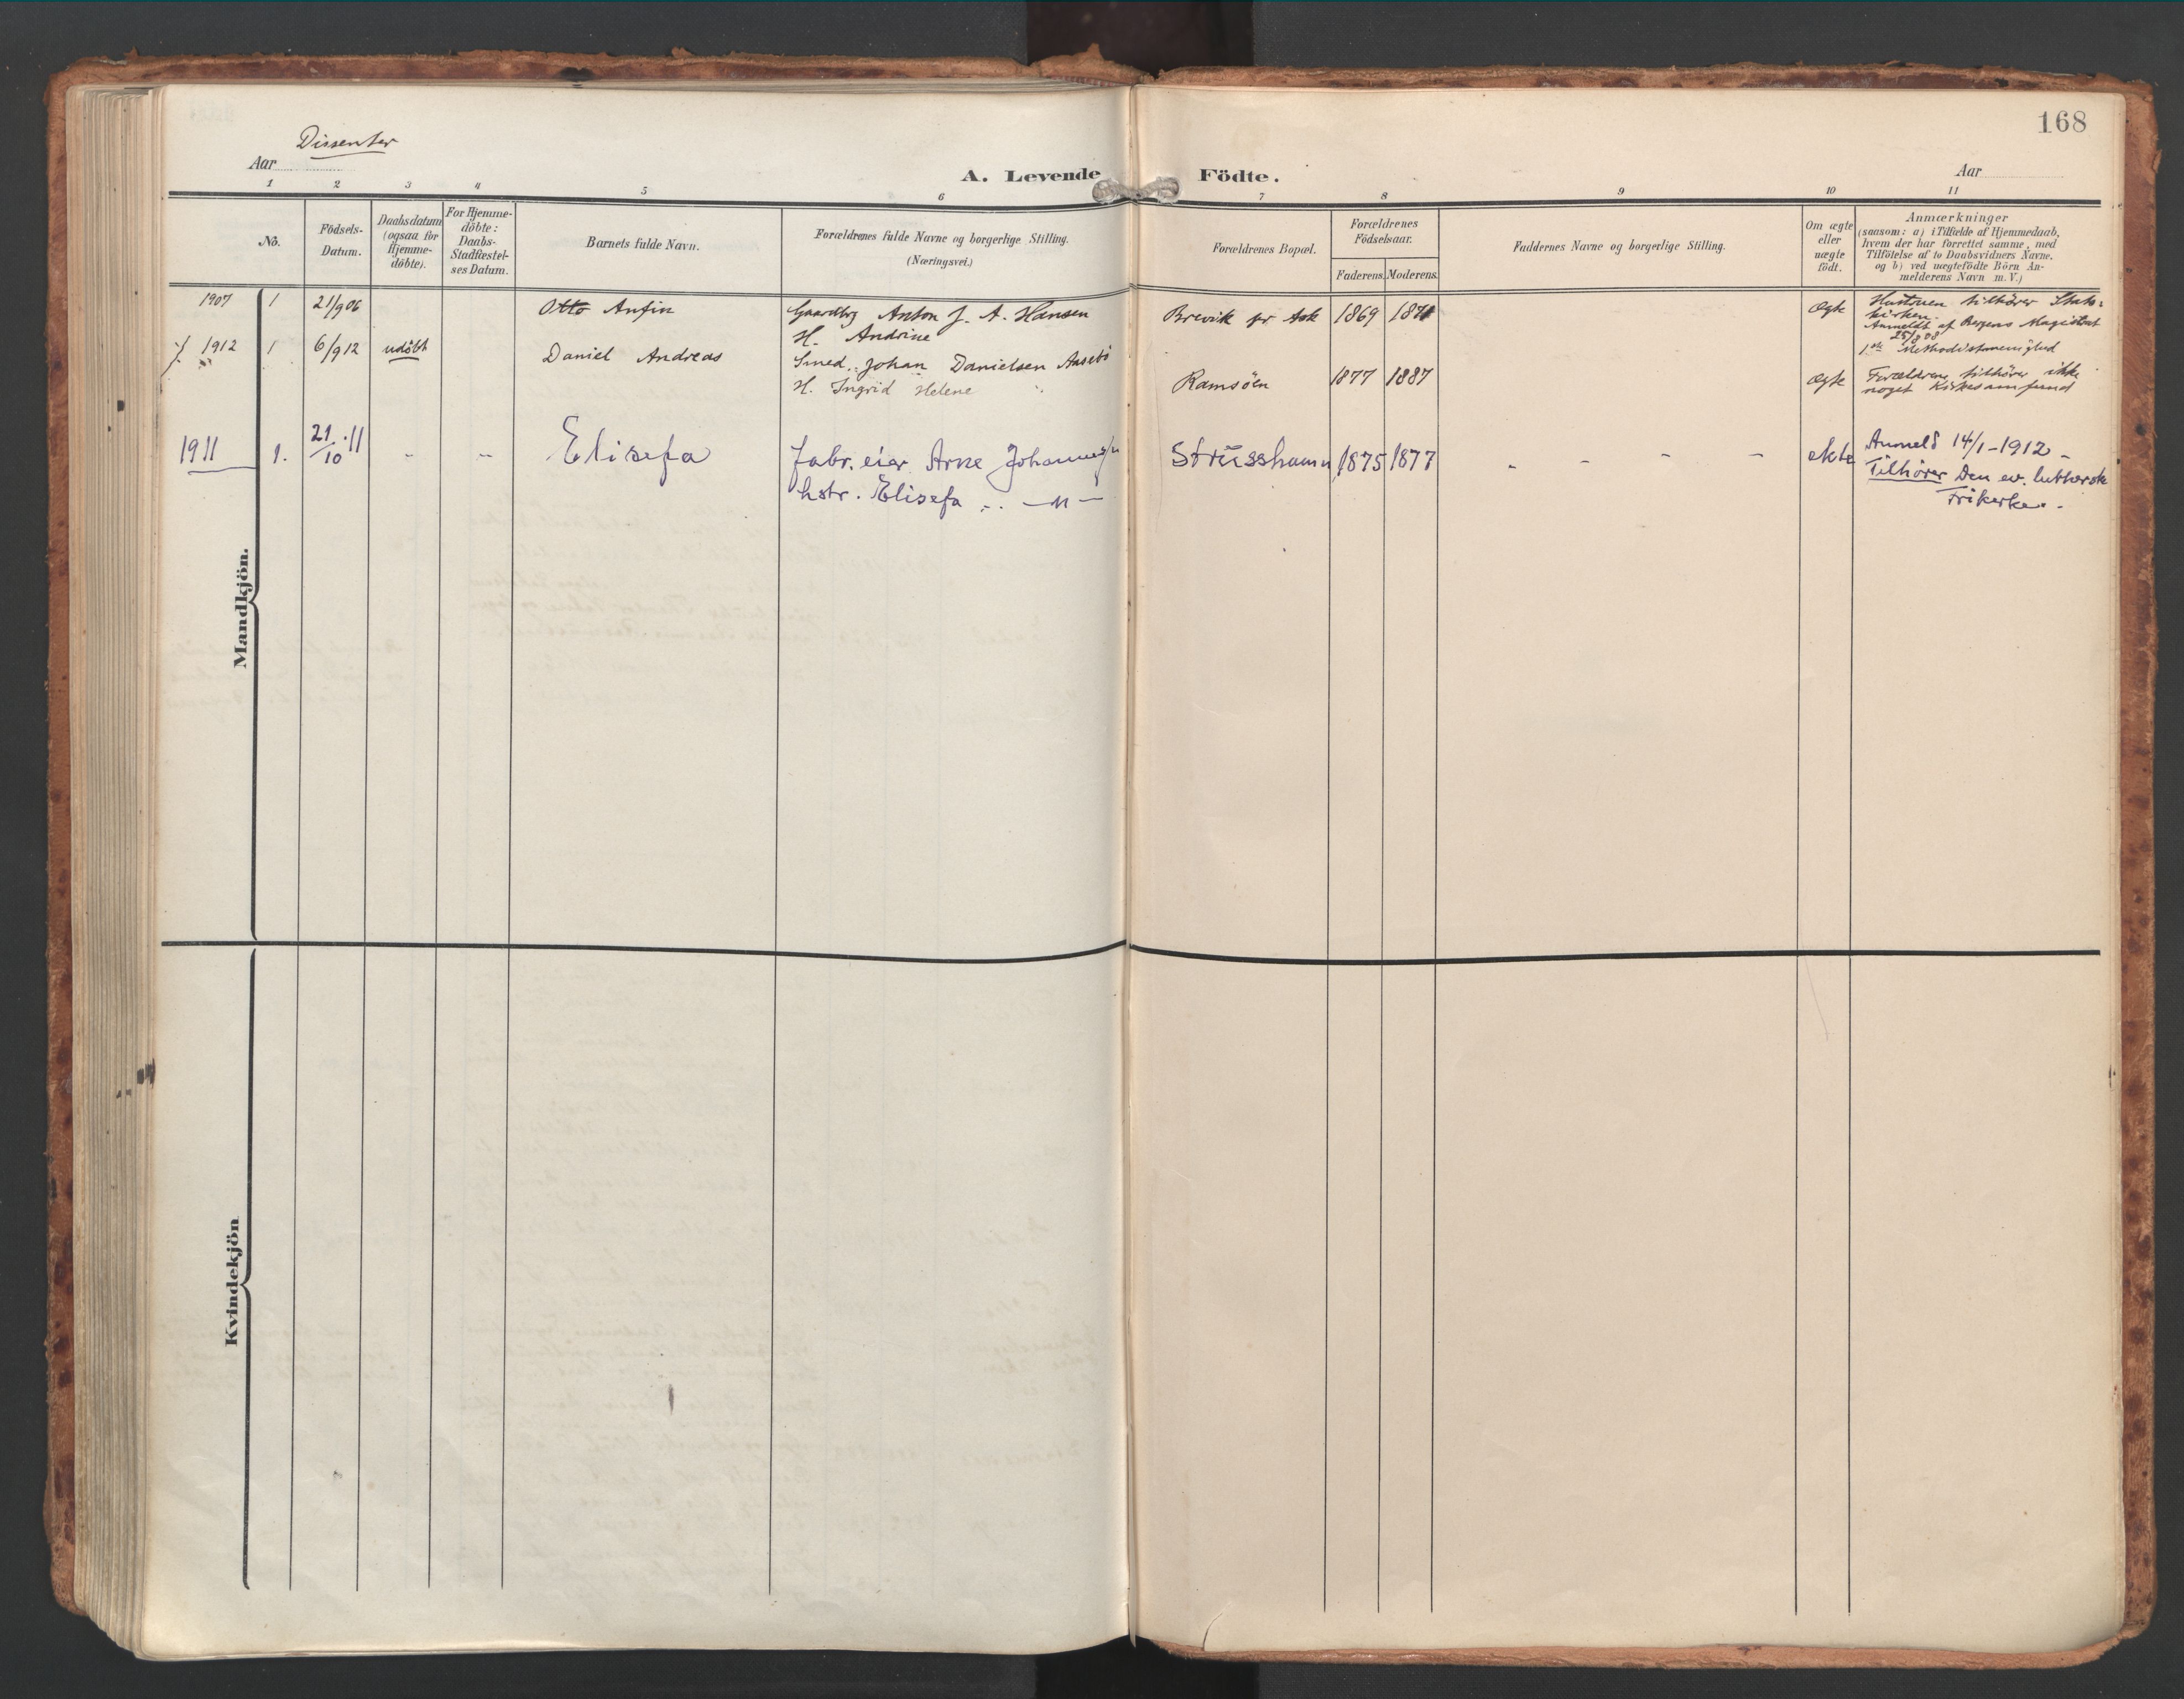 168
Dissenter
Aar
A. Levende Födte.
Aar
1 2 3 4 5 6 7 8 9 10 11
No.
Födsels-
Datum.
Daabsdatum
(ogsaa for
Hjemme-
döbte).
For Hjemme-
döbte:
Daabs-
Stadfæstel-
ses Datum.
Barnets fulde Navn.
Forældrenes fulde Navne og borgerlige Stilling.
(Næringsvei.)
Forældrenes Bopæl.
Forældrenes
Födselsaar.
Faderens. Moderens.
Faddernes Navne og borgerlige Stilling.
Om ægte
eller
uægte
födt.
Anmærkninger
(saasom: a) i Tilfælde af Hjemmedaab,
hvem der har forrettet samme, med
Tilföielse af to Daabsvidners Navne.
og b) ved uægtefödte Börn An-
melderens Navn m. V.)
Mandkjön.
1907 1 21/9 06 Otto Anfin Gaardbrg Anton J. A. Hansen Brevik pr Ask 1869 1871 Ægte Hustruen tilhører Stats-
H. Andrine kirken.
Anmeldt af Bergens Magistrat
25/9 08
1ste Methodistmenighed
1912 1 6/9 12 udöbt Daniel Andreas Smed Johan Danielsen Aasebö Ramsöen 1877 1887 Ægte Forældrene tilhører ikke
H. Ingrid Helene noget Kirkesamfund
1911 1. 21/10.11 - - Elisefa fabr. eier Arne Johannes/n Strusshamn 1875 1877 - - - - ekte Anmeld 14/1-1912 -
hstr. Elisefa -"- Tilhører Den ev. luthersk
Frikerke.
Kvindekjön